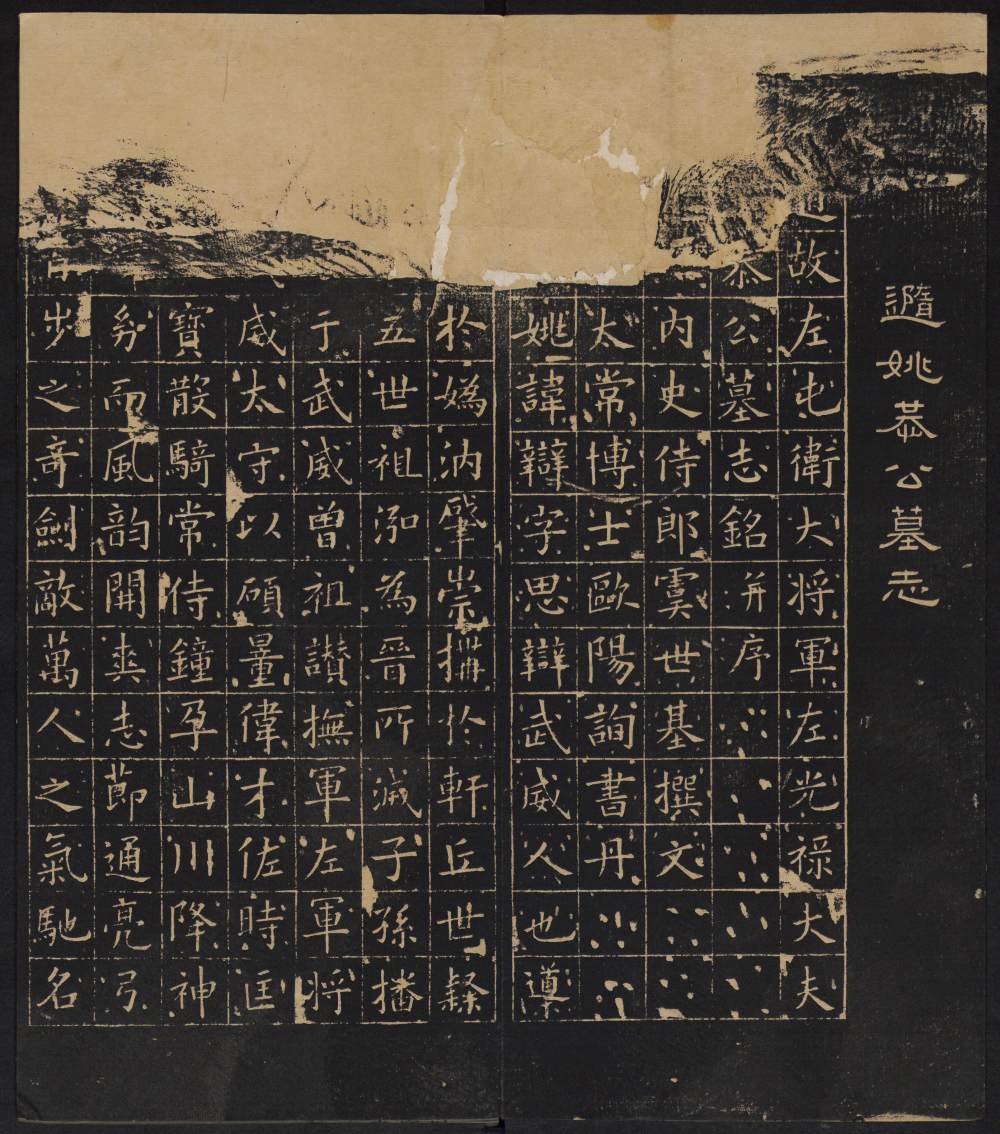 隨姚恭公墓志
故左屯衛大將軍左光祿大夫
恭公墓志銘并序
內史侍郎虞世基撰文
太常博士歐陽詢書丹
姚諱辯字思辯武威人也導
於媯汭肇崇構於軒丘世繇
五世祖泓為晉所滅子孫播
于武威曾祖讃撫軍左軍將
威太守以碩量偉才佐時匡
寶散騎常侍鐘孕山川降神
幼而風韵開爽志節通亮弓
步之奇劍敵萬人之氣馳名